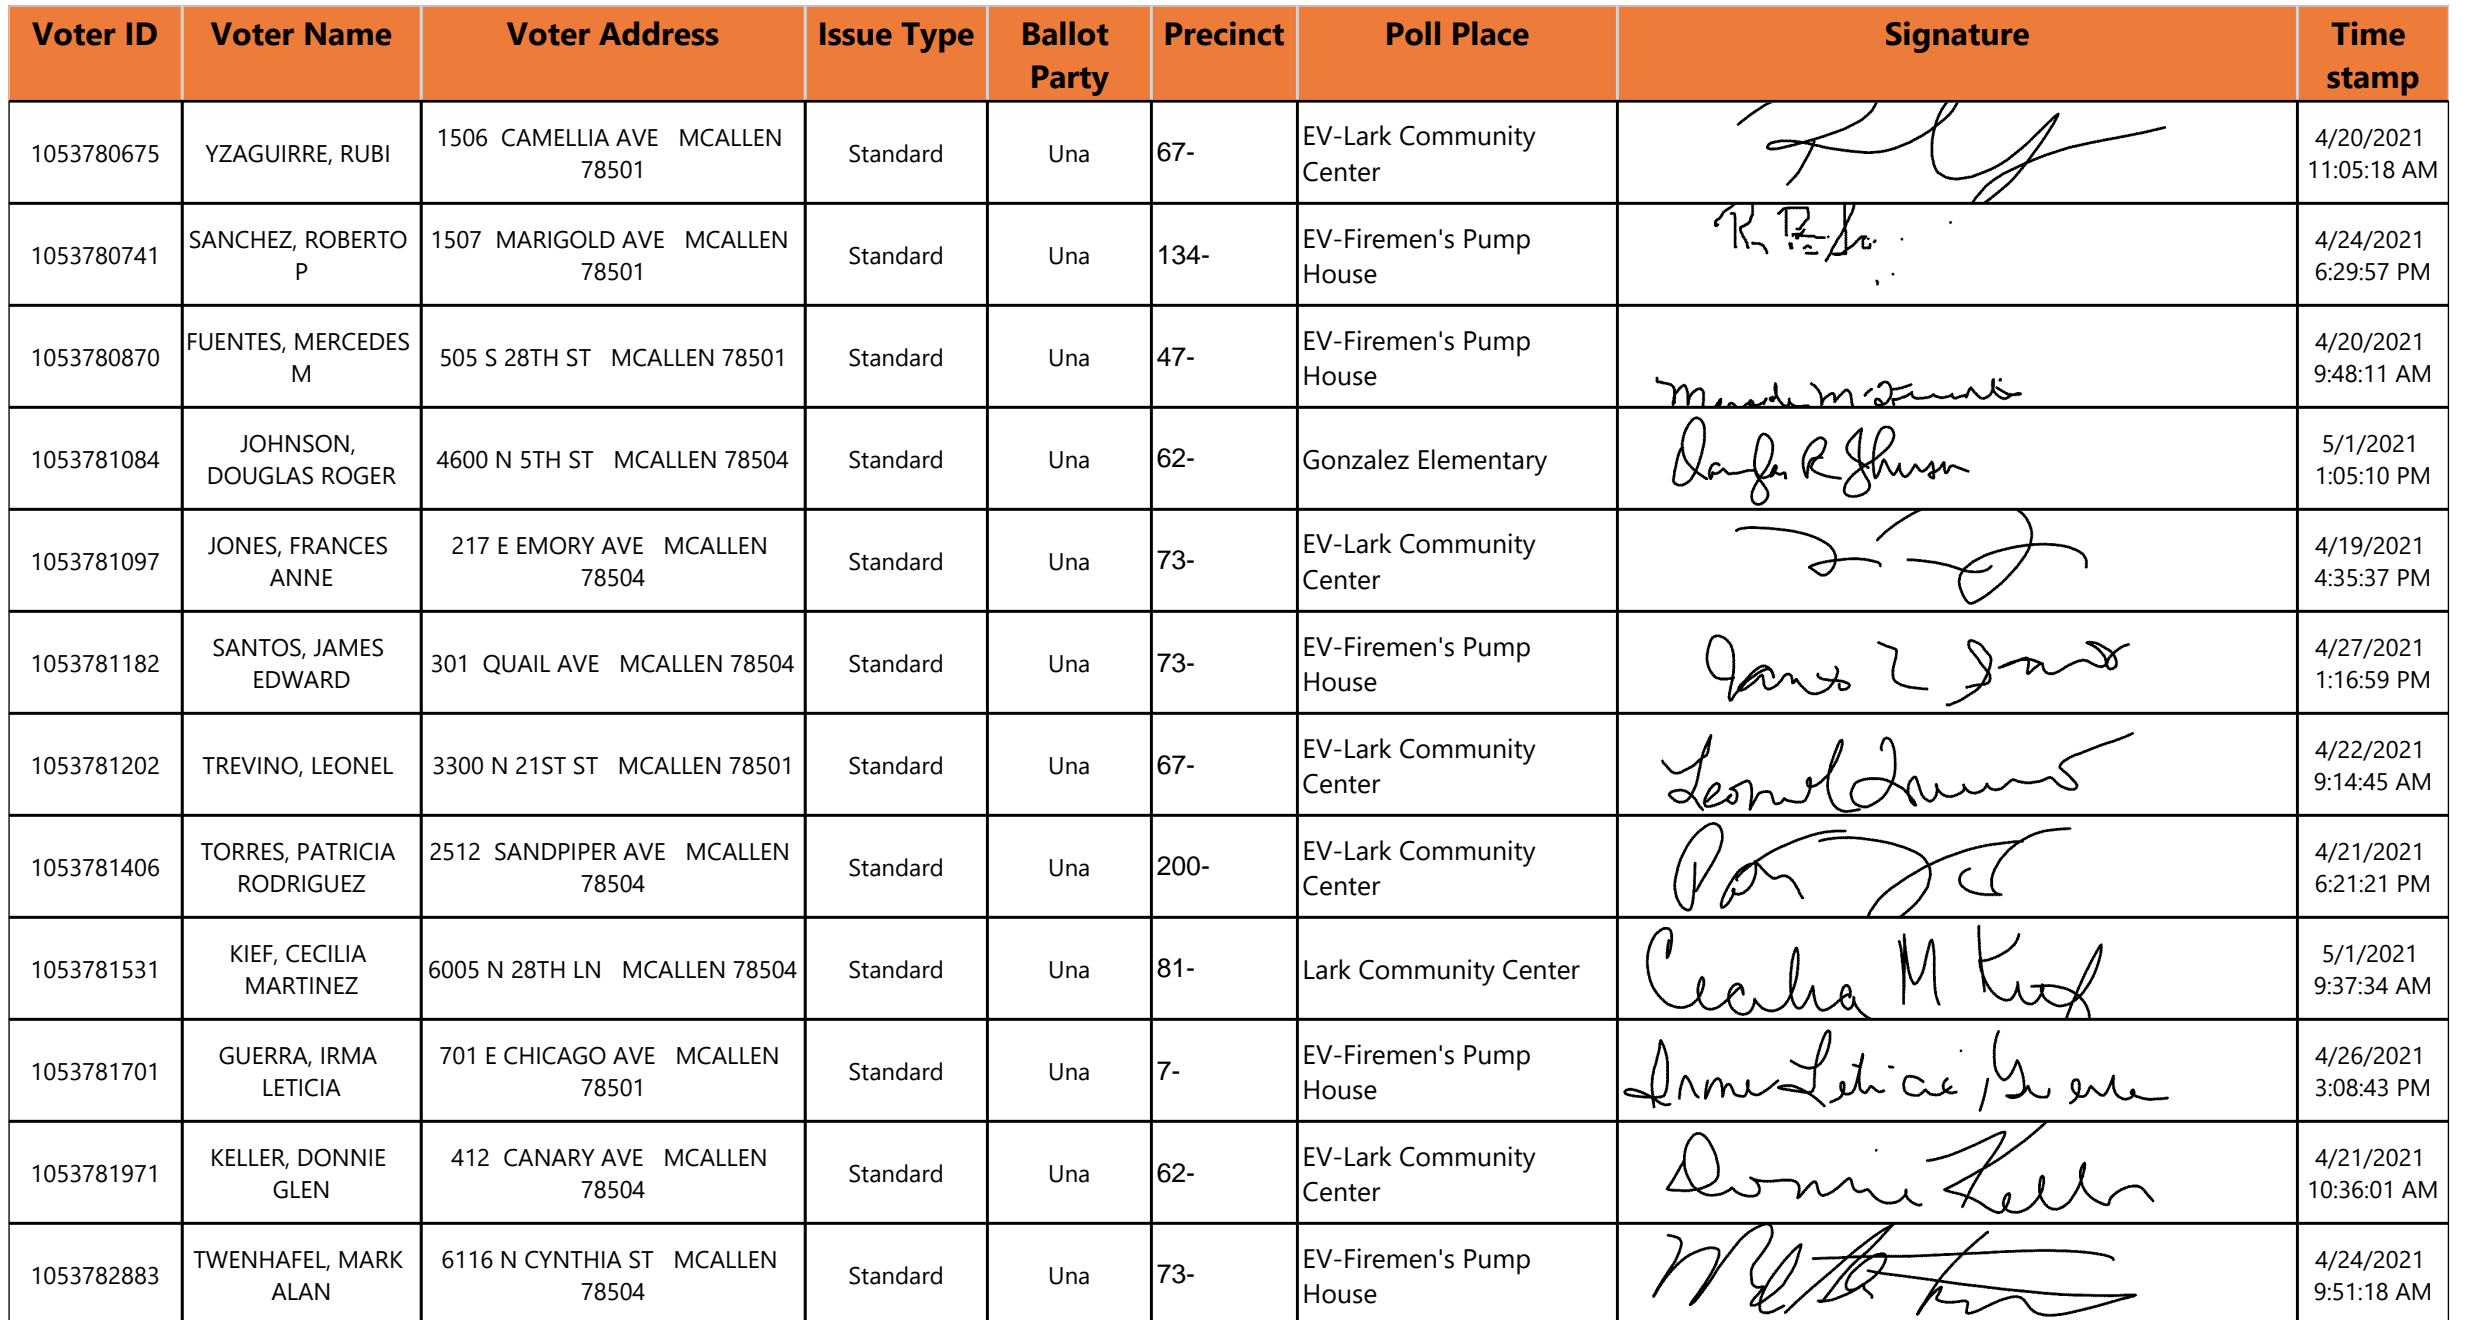 Voter ID Voter Name Voter Address Issue Type Ballot Party Precinct Poll Place Signature Time stamp
1053780675 YZAGUIRRE, RUBI 1506 CAMELLIA AVE MCALLEN 78501 Standard Una 67- EV-Lark Community Center 4/20/2021 11:05:18 AM
1053780741 SANCHEZ, ROBERTO P 1507 MARIGOLD AVE MCALLEN 78501 Standard Una 134- EV-Firemen's Pump House 4/24/2021 6:29:57 PM
1053780870 FUENTES, MERCEDES M 505 S 28TH ST MCALLEN 78501 Standard Una 47- EV-Firemen's Pump House 4/20/2021 9:48:11 AM
1053781084 JOHNSON, DOUGLAS ROGER 4600 N 5TH ST MCALLEN 78504 Standard Una 62- Gonzalez Elementary 5/1/2021 1:05:10 PM
1053781097 JONES, FRANCES ANNE 217 E EMORY AVE MCALLEN 78504 Standard Una 73- EV-Lark Community Center 4/19/2021 4:35:37 PM
1053781182 SANTOS, JAMES EDWARD 301 QUAIL AVE MCALLEN 78504 Standard Una 73- EV-Firemen's Pump House 4/27/2021 1:16:59 PM
1053781202 TREVINO, LEONEL 3300 N 21ST ST MCALLEN 78501 Standard Una 67- EV-Lark Community Center Leonel 4/22/2021 9:14:45 AM
1053781406 TORRES, PATRICIA RODRIGUEZ 2512 SANDPIPER AVE MCALLEN 78504 Standard Una 200- EV-Lark Community Center 4/21/2021 6:21:21 PM
1053781531 KIEF, CECILIA MARTINEZ 6005 N 28TH LN MCALLEN 78504 Standard Una 81- Lark Community Center Cecilia M Kief 5/1/2021 9:37:34 AM
1053781701 GUERRA, IRMA LETICIA 701 E CHICAGO AVE MCALLEN 78501 Standard Una 7- EV-Firemen's Pump House Irma Leticia Guerra 4/26/2021 3:08:43 PM
1053781971 KELLER, DONNIE GLEN 412 CANARY AVE MCALLEN 78504 Standard Una 62- EV-Lark Community Center Donnie Keller 4/21/2021 10:36:01 AM
1053782883 TWENHAFEL, MARK ALAN 6116 N CYNTHIA ST MCALLEN 78504 Standard Una 73- EV-Firemen's Pump House 4/24/2021 9:51:18 AM